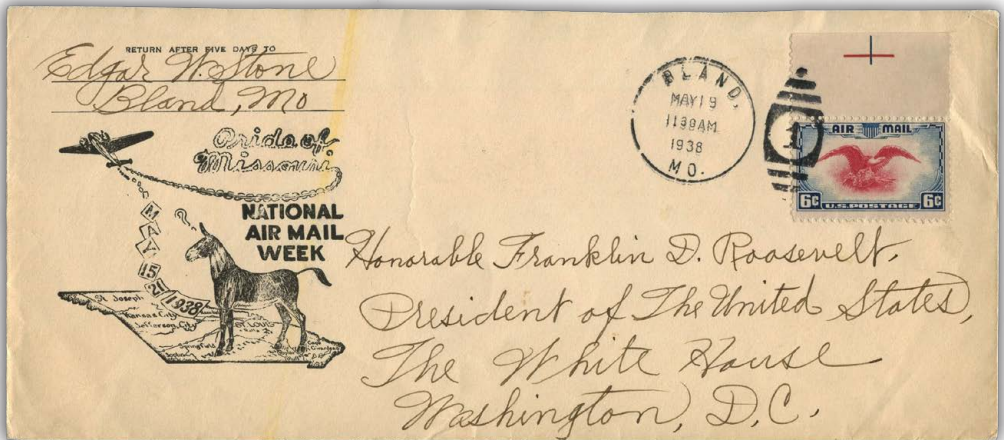 RETURN AFTER FIVE DAYS TO
Edgar W. Stone
Bland, Mo
Pride of
Missouri
NATIONAL
AIR MAIL
WEEK
?
MAY
15
21
1938
St. Joseph
Kansas City
Jefferson City
ST. LOUIS
Springfield
BLAND,
MAY 19
1130AM
1938
MO.
1
AIR MAIL
6¢ 6¢
U.S. POSTAGE
Honorable Franklin D. Roosevelt,
President of The United States,
The White House
Washington, D.C.